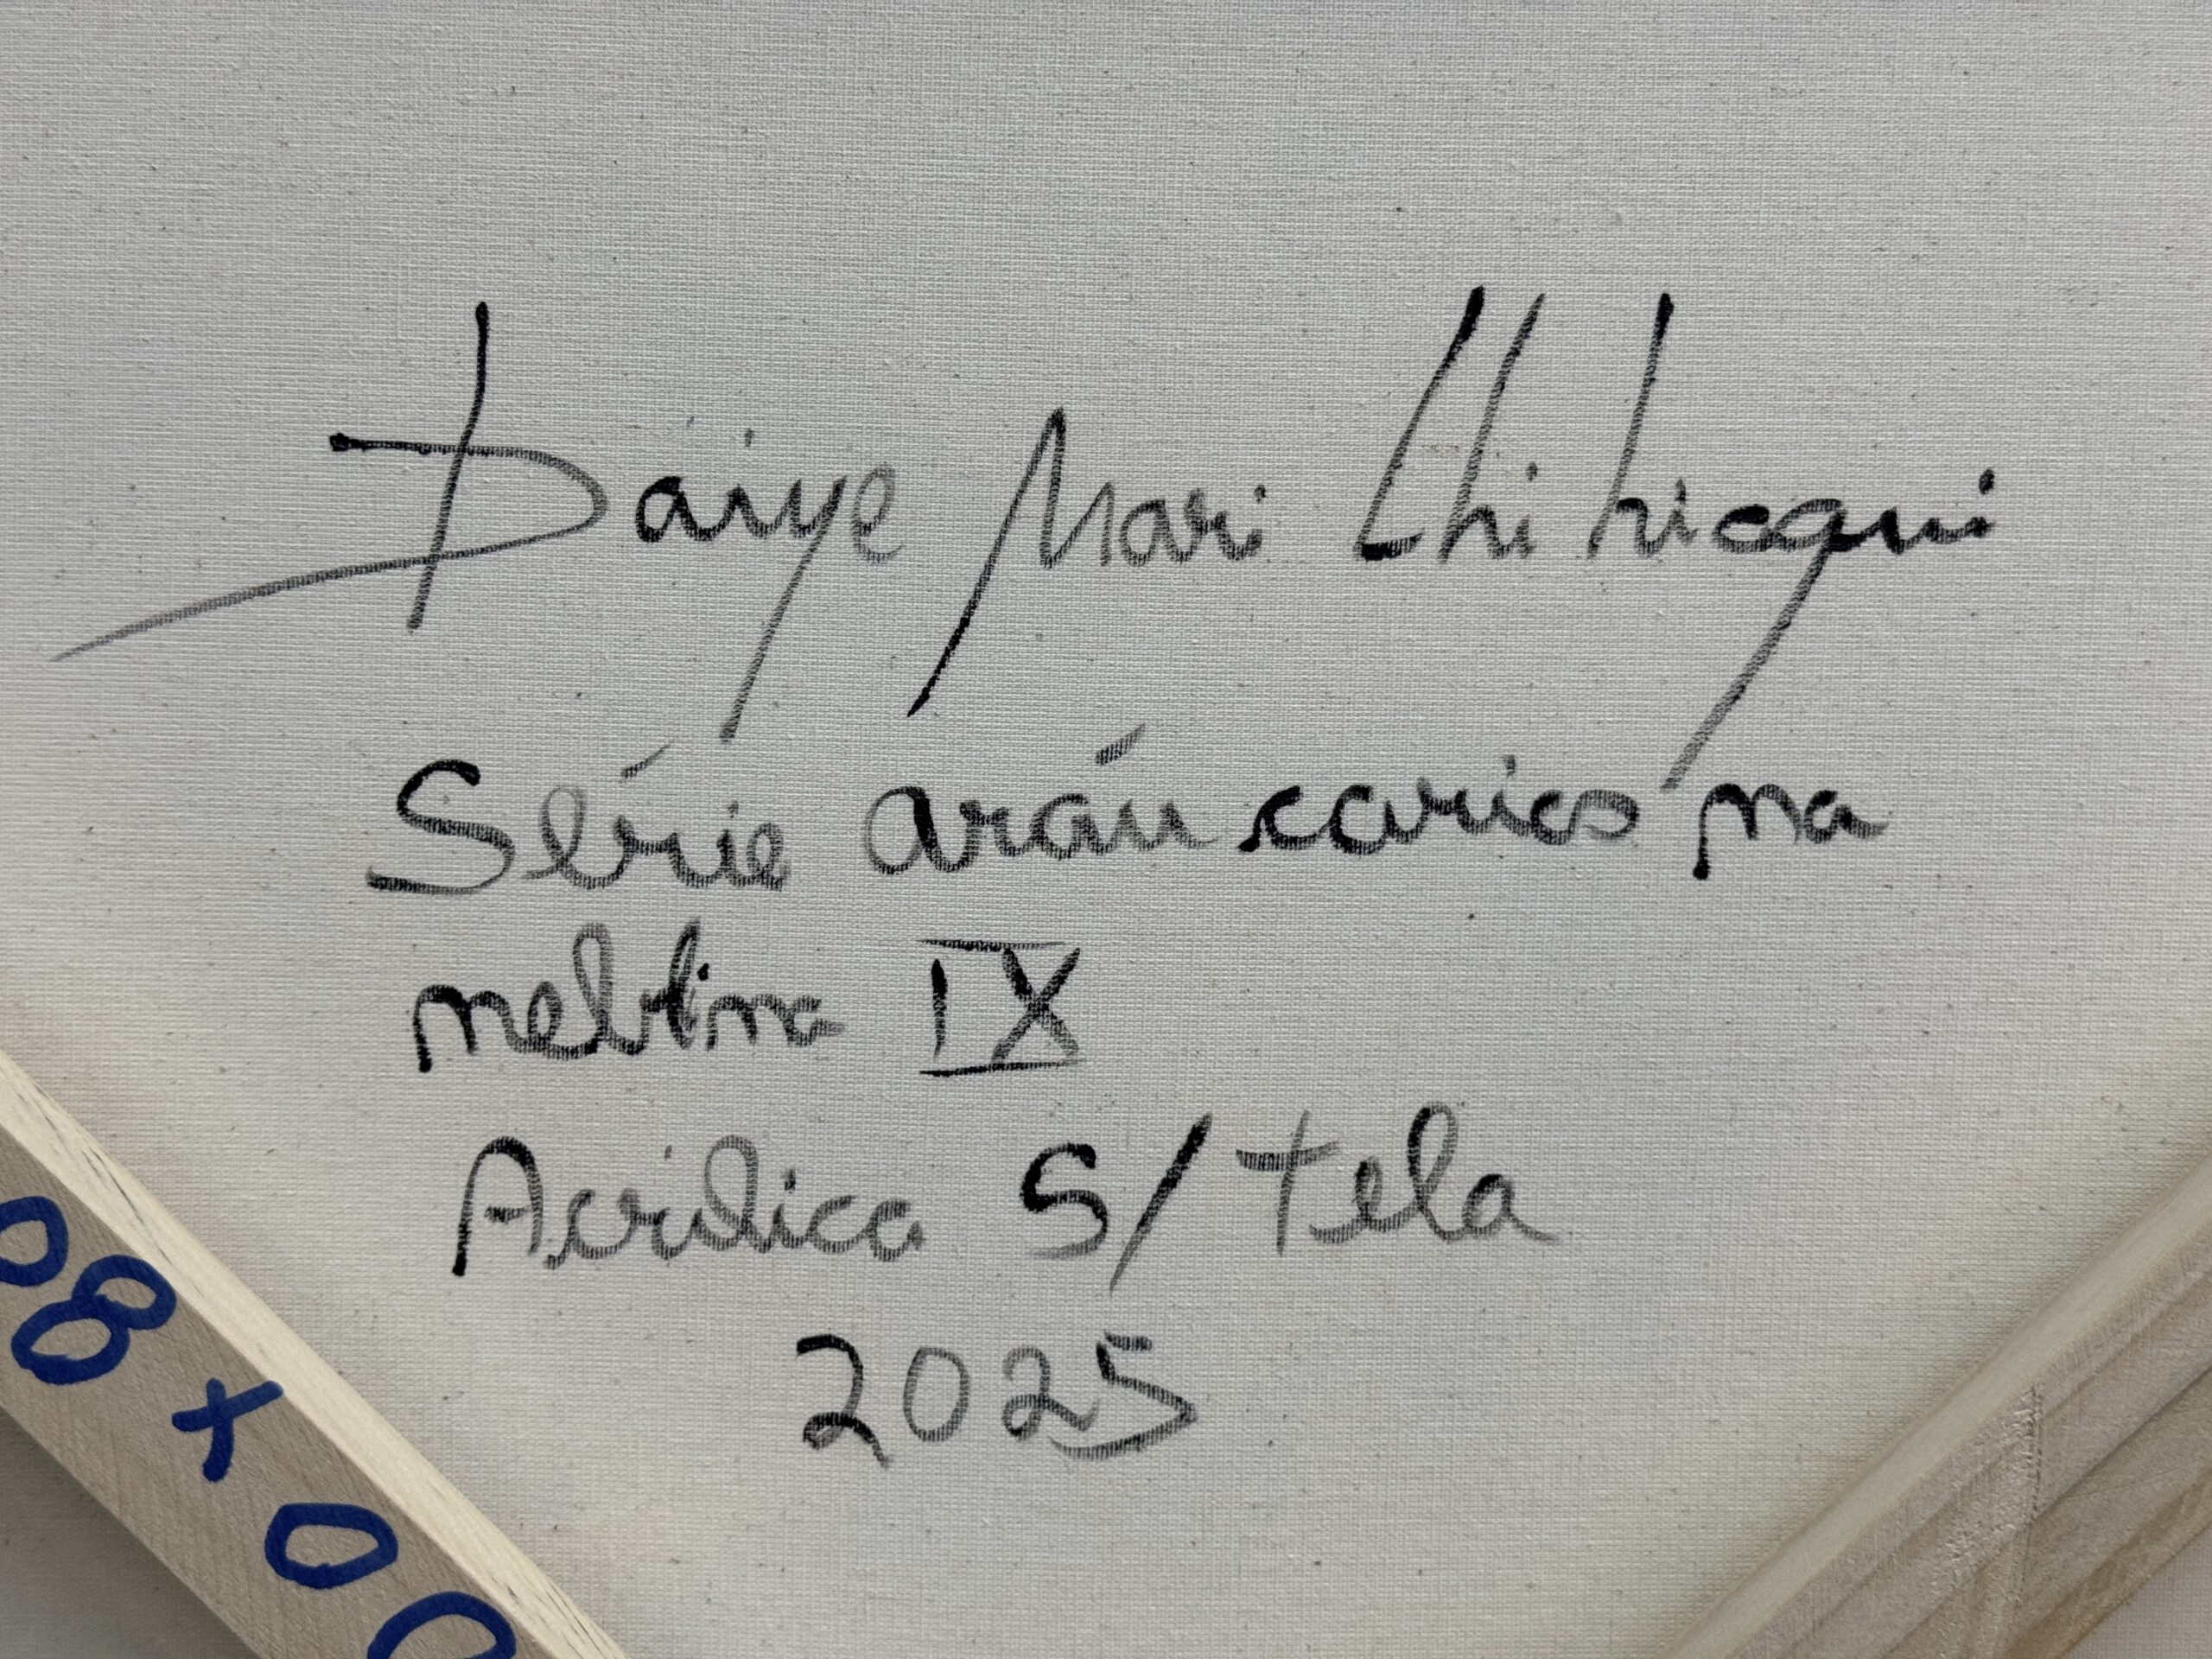 Daiye Mari Chihicqui
Série araúcarias na
neblina IX
Acrílica S/ tela
2025
08 x 00